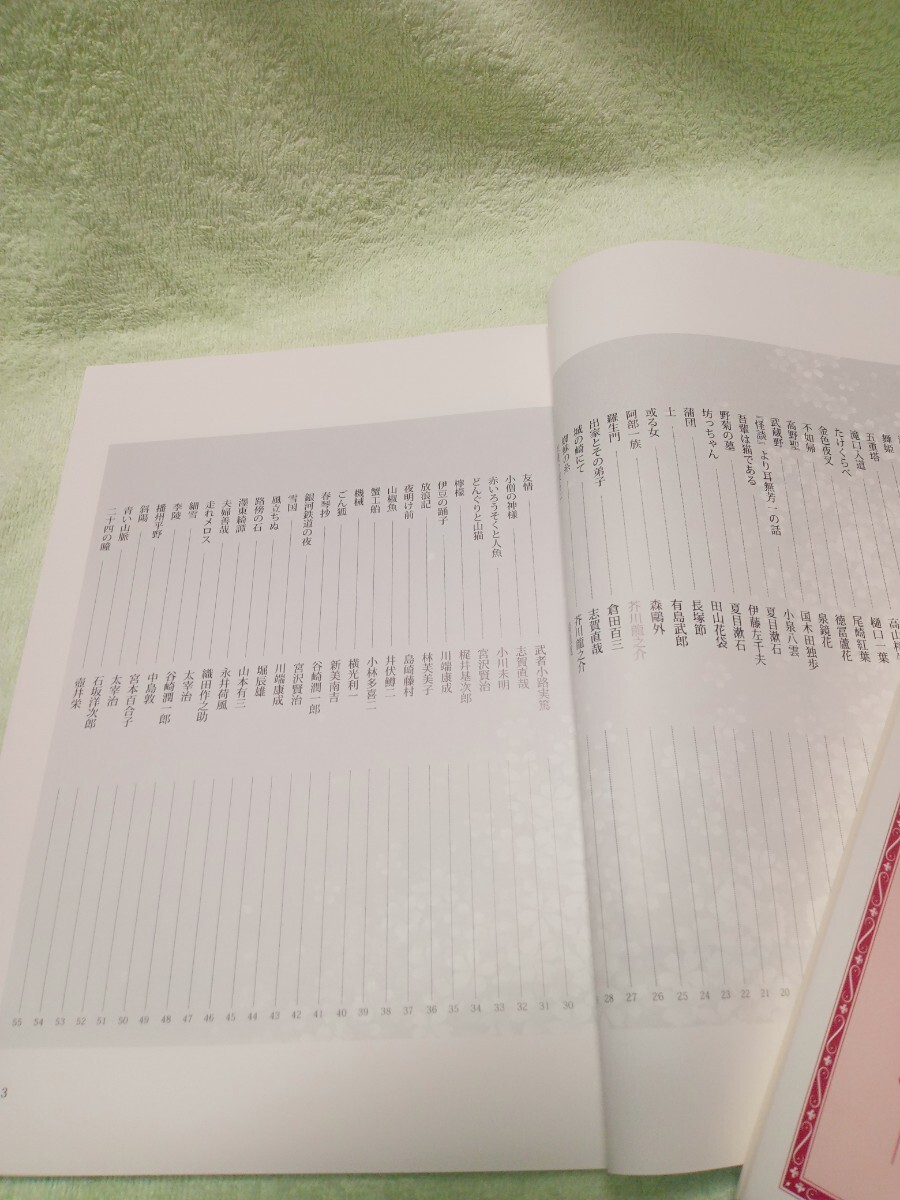 舞姫
五重塔
滝口入道 高山
たけくらべ 樋口一葉
金色夜叉 尾崎紅葉
不如帰 徳冨蘆花
高野聖 泉鏡花
武蔵野 国木田独歩
『怪談』より耳無芳一の話 小泉八雲
吾輩は猫である 夏目漱石
野菊の墓 伊藤左千夫 20
坊っちゃん 夏目漱石 21
蒲団 田山花袋 22
土 長塚節 23
或る女 有島武郎 24
阿部一族 森鷗外 25
羅生門 芥川龍之介 26
出家とその弟子 倉田百三 27
城の崎にて 志賀直哉 28
芥川龍之介
友情 武者小路実篤 30
小僧の神様 志賀直哉 31
赤いろうそくと人魚 小川未明 32
どんぐりと山猫 宮沢賢治 33
檸檬 梶井基次郎 34
伊豆の踊子 川端康成 35
放浪記 林芙美子 36
夜明け前 島崎藤村 37
山椒魚 井伏鱒二 38
蟹工船 小林多喜二 39
機械 横光利一 40
ごん狐 新美南吉 41
春琴抄 谷崎潤一郎 42
銀河鉄道の夜 宮沢賢治 43
雪国 川端康成 44
風立ちぬ 堀辰雄 45
路傍の石 山本有三 46
濹東綺譚 永井荷風 47
夫婦善哉 織田作之助 48
走れメロス 太宰治 49
細雪 谷崎潤一郎 50
李陵 中島敦 51
播州平野 宮本百合子 52
斜陽 太宰治 53
青い山脈 石坂洋次郎 54
二十四の瞳 壺井栄 55
3